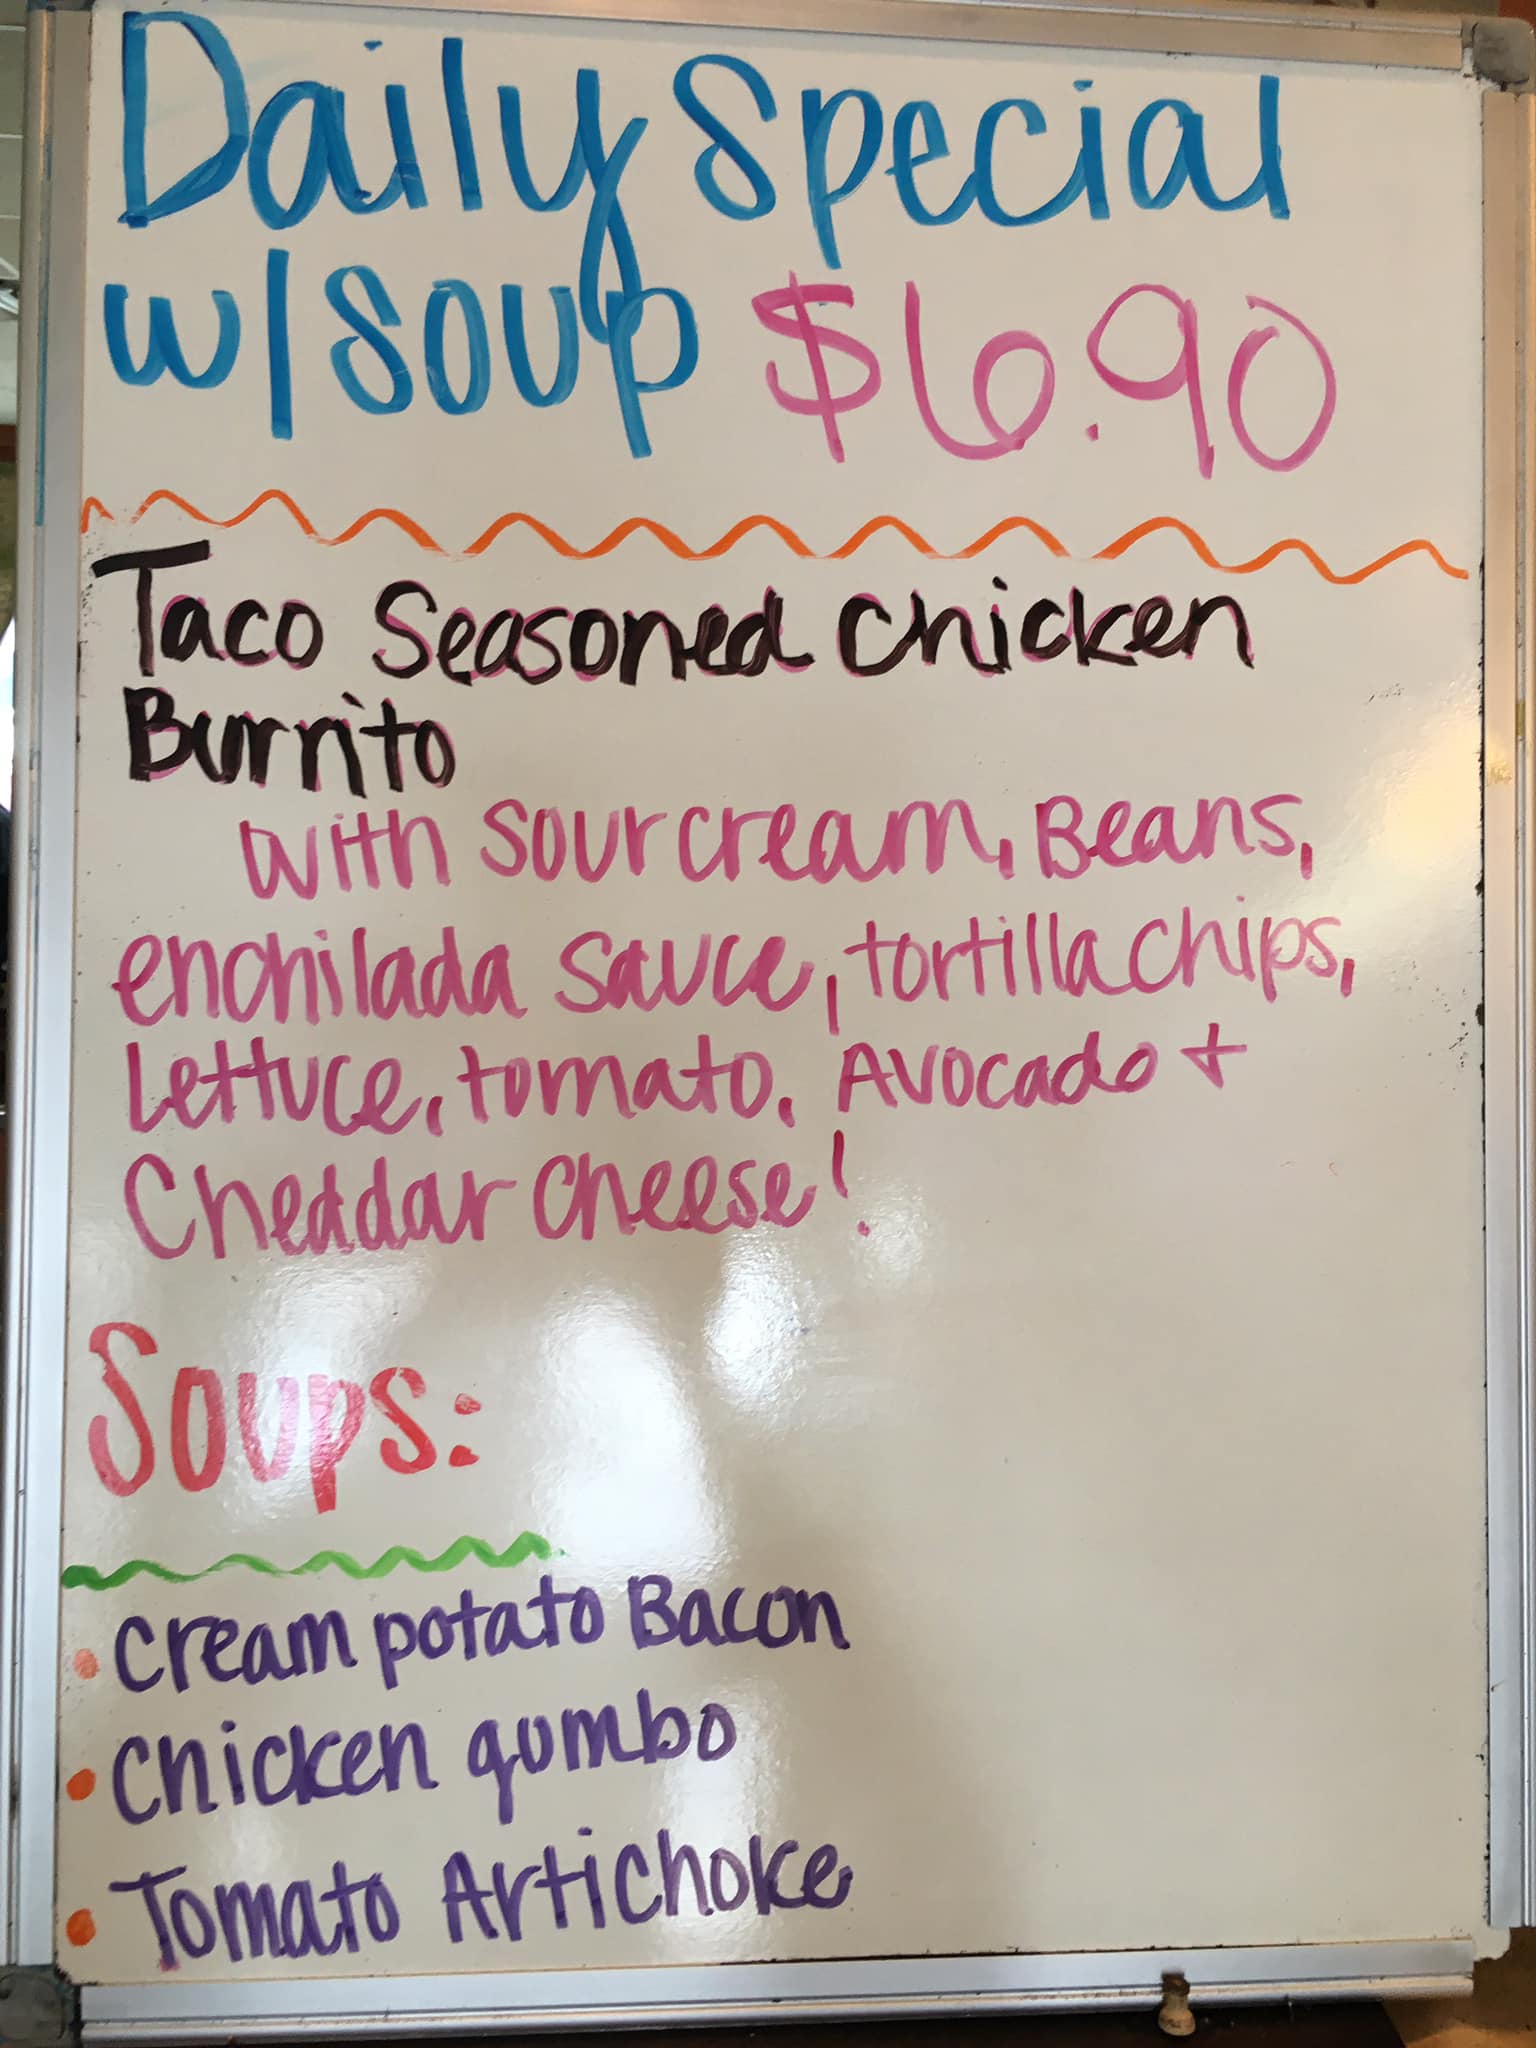 Daily Special
w/ Soup $6.90
Taco Seasoned Chicken
Burrito
with sour cream, Beans,
enchilada sauce, tortilla chips,
Lettuce, tomato, Avocado +
Cheddar cheese!
Soups:
• Cream potato Bacon
• Chicken gumbo
• Tomato Artichoke